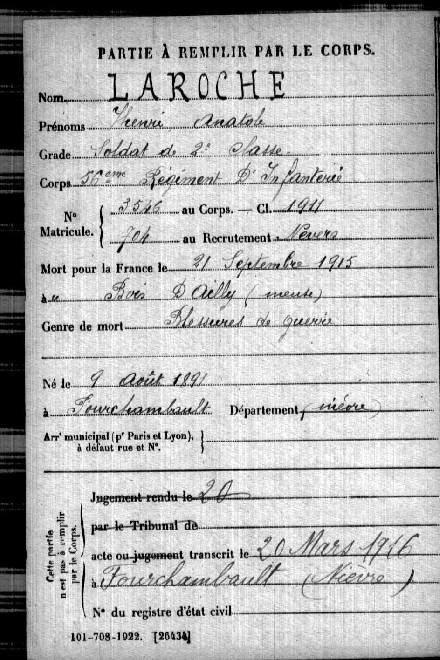 PARTIE À REMPLIR PAR LE CORPS.
Nom LAROCHE
Prénoms Henri Anatole
Grade Soldat de 2e Classe
Corps 56ème Régiment D'Infanterie
N° Matricule. { 3546 au Corps. — Cl. 1911
704 au Recrutement Nevers
Mort pour la France le 21 Septembre 1915
à Bois D'Ailly (meuse)
Genre de mort Blessures de guerre
Né le 9 Août 1891
à Fourchambault Département (nièvre)
Arrt municipal (pr Paris et Lyon),
à défaut rue et N°.
Cette partie n'est pas à remplir par le Corps.
Jugement rendu le 20
par le Tribunal de
acte ou jugement transcrit le 20 Mars 1916
à Fourchambault (Nièvre)
N° du registre d'état civil
101-708-1922. [26434]